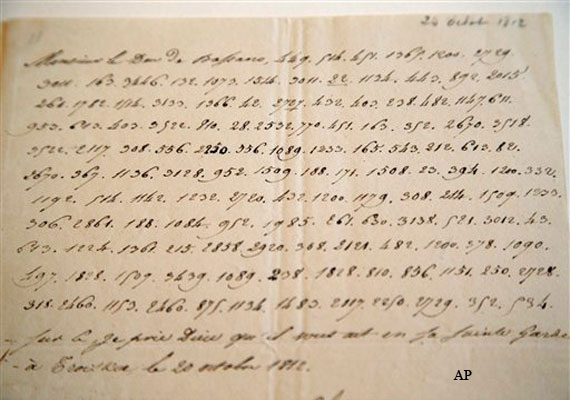 20 octobre 1812
Monsieur le Duc de Bassano, 449. 514. 451. 1365. 1200. 2729.
3011. 163. 3446. 132. 1073. 1354. 3011. 22. 1134. 443. 892. 2015
261. 1782. 1114. 3133. 1366. 42. 2727. 432. 403. 238. 482. 1147. 611.
953. 643. 403. 3522. 810. 28. 2532. 770. 451. 163. 352. 2670. 3518.
3522. 2117. 308. 536. 2250. 356. 1089. 1233. 165. 543. 212. 613. 821.
2670. 367. 1136. 3128. 952. 1509. 188. 171. 1508. 23. 394. 1200. 332.
1192. 514. 1142. 1232. 2720. 432. 1200. 1179. 308. 214. 1509. 1233.
306. 2861. 188. 1084. 952. 1985. 261. 630. 3138. 521. 3012. 43.
643. 1224. 1361. 215. 2858. 2920. 308. 2121. 482. 1200. 378. 1090.
497. 1828. 1509. 3439. 1089. 238. 1828. 810. 836. 1151. 250. 2728.
318. 2460. 1153. 2460. 875. 1134. 1483. 2117. 2250. 2729. 352. 534.
Sur ce je prie Dieu qu'il vous ait en sa Sainte Garde
à Troitskoe le 20 octobre 1812.
AP